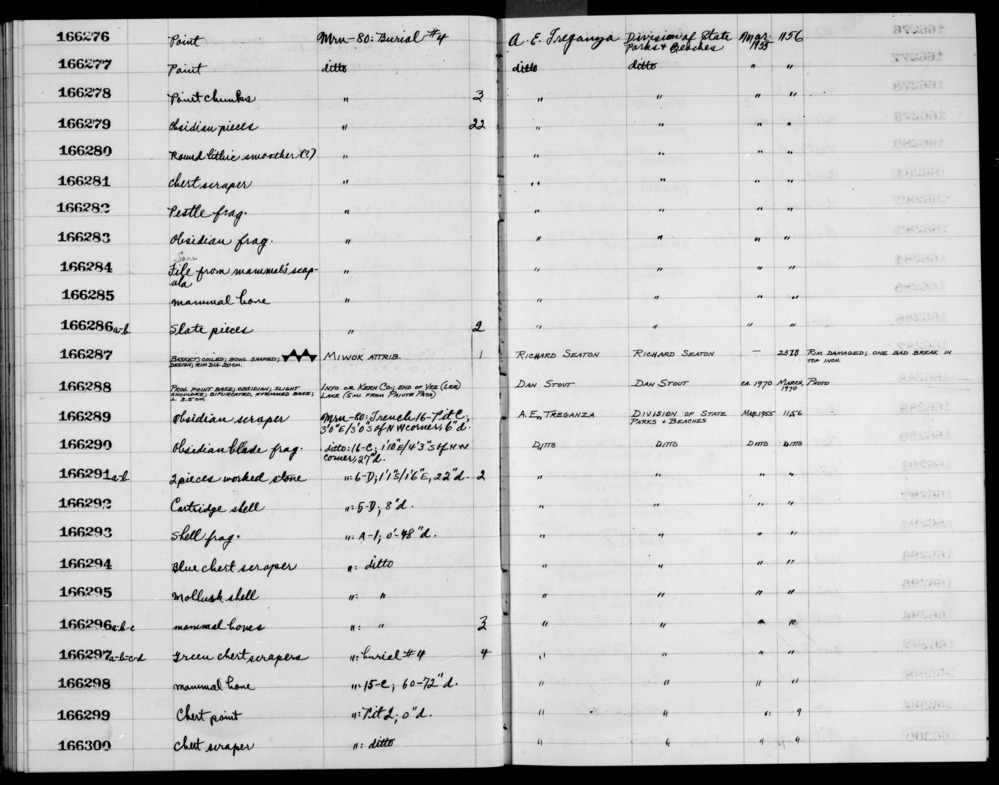 166276 Point Mrn-80: Burial #4 A. E. Treganza Division of State Parks & Beaches Mar. 1955 1156
166277 Point ditto ditto ditto " "
166278 Point chunks " 3 " " " "
166279 Obsidian pieces " 22 " " " "
166280 Round lithic smoother (?) " " " " "
166281 Chert scraper " " " " "
166282 Pestle frag. " " " " "
166283 Obsidian frag. " " " " "
166284 Saw File from mammal's scap-
ula " " " " "
166285 mammal bone " " " " "
166286a-b Slate pieces " 2 " " " "
166287 BASKET; COILED; BOWL SHAPED; DESIGN; RIM DIA. 20 CM. MIWOK ATTRIB. 1 RICHARD SEATON RICHARD SEATON — 2378 RIM DAMAGED; ONE BAD BREAK IN
TOP INCH.
166288 PROJ. POINT BASE; OBSIDIAN; SLIGHT
SHOULDER; BIFURCATED, STEMMED BASE;
L. 2.5 CM. INYO OR KERN CO.; END OF VEE (LEA)
LAKE (5 MI. FROM PAIUTE PASS) DAN STOUT DAN STOUT CA. 1970 MARCH, 1970 PHOTO
166289 Obsidian scraper Mrn-80: Trench 16-Pit C;
3'0"E/3'0"S of NW corner, 6"d. A.E. TREGANZA DIVISION OF STATE
PARKS & BEACHES MAR. 1955 1156
166290 Obsidian blade frag. ditto: 16-C; 1'10"E/4'3"S of NW
corner, 27"d. DITTO DITTO DITTO DITTO
166291a-b 2 pieces worked stone ": 6-D; 1'1"S/1'6"E, 22"d. 2 " " " "
166292 Cartridge shell ": 5-D; 8"d. " " " "
166293 Shell frag. ": A-1; 0"-48"d. " " " "
166294 Blue chert scraper ": ditto " " " "
166295 Mollusk shell ": " " " " "
166296a-b-c mammal bones ": " 3 " " " "
166297a-b-c-d Green chert scrapers ": burial #4 4 " " " "
166298 mammal bone ": 15-C; 60-72"d. " " " "
166299 Chert point ": Pit 2; 0"d. " " " "
166300 Chert scraper ": ditto " " " "